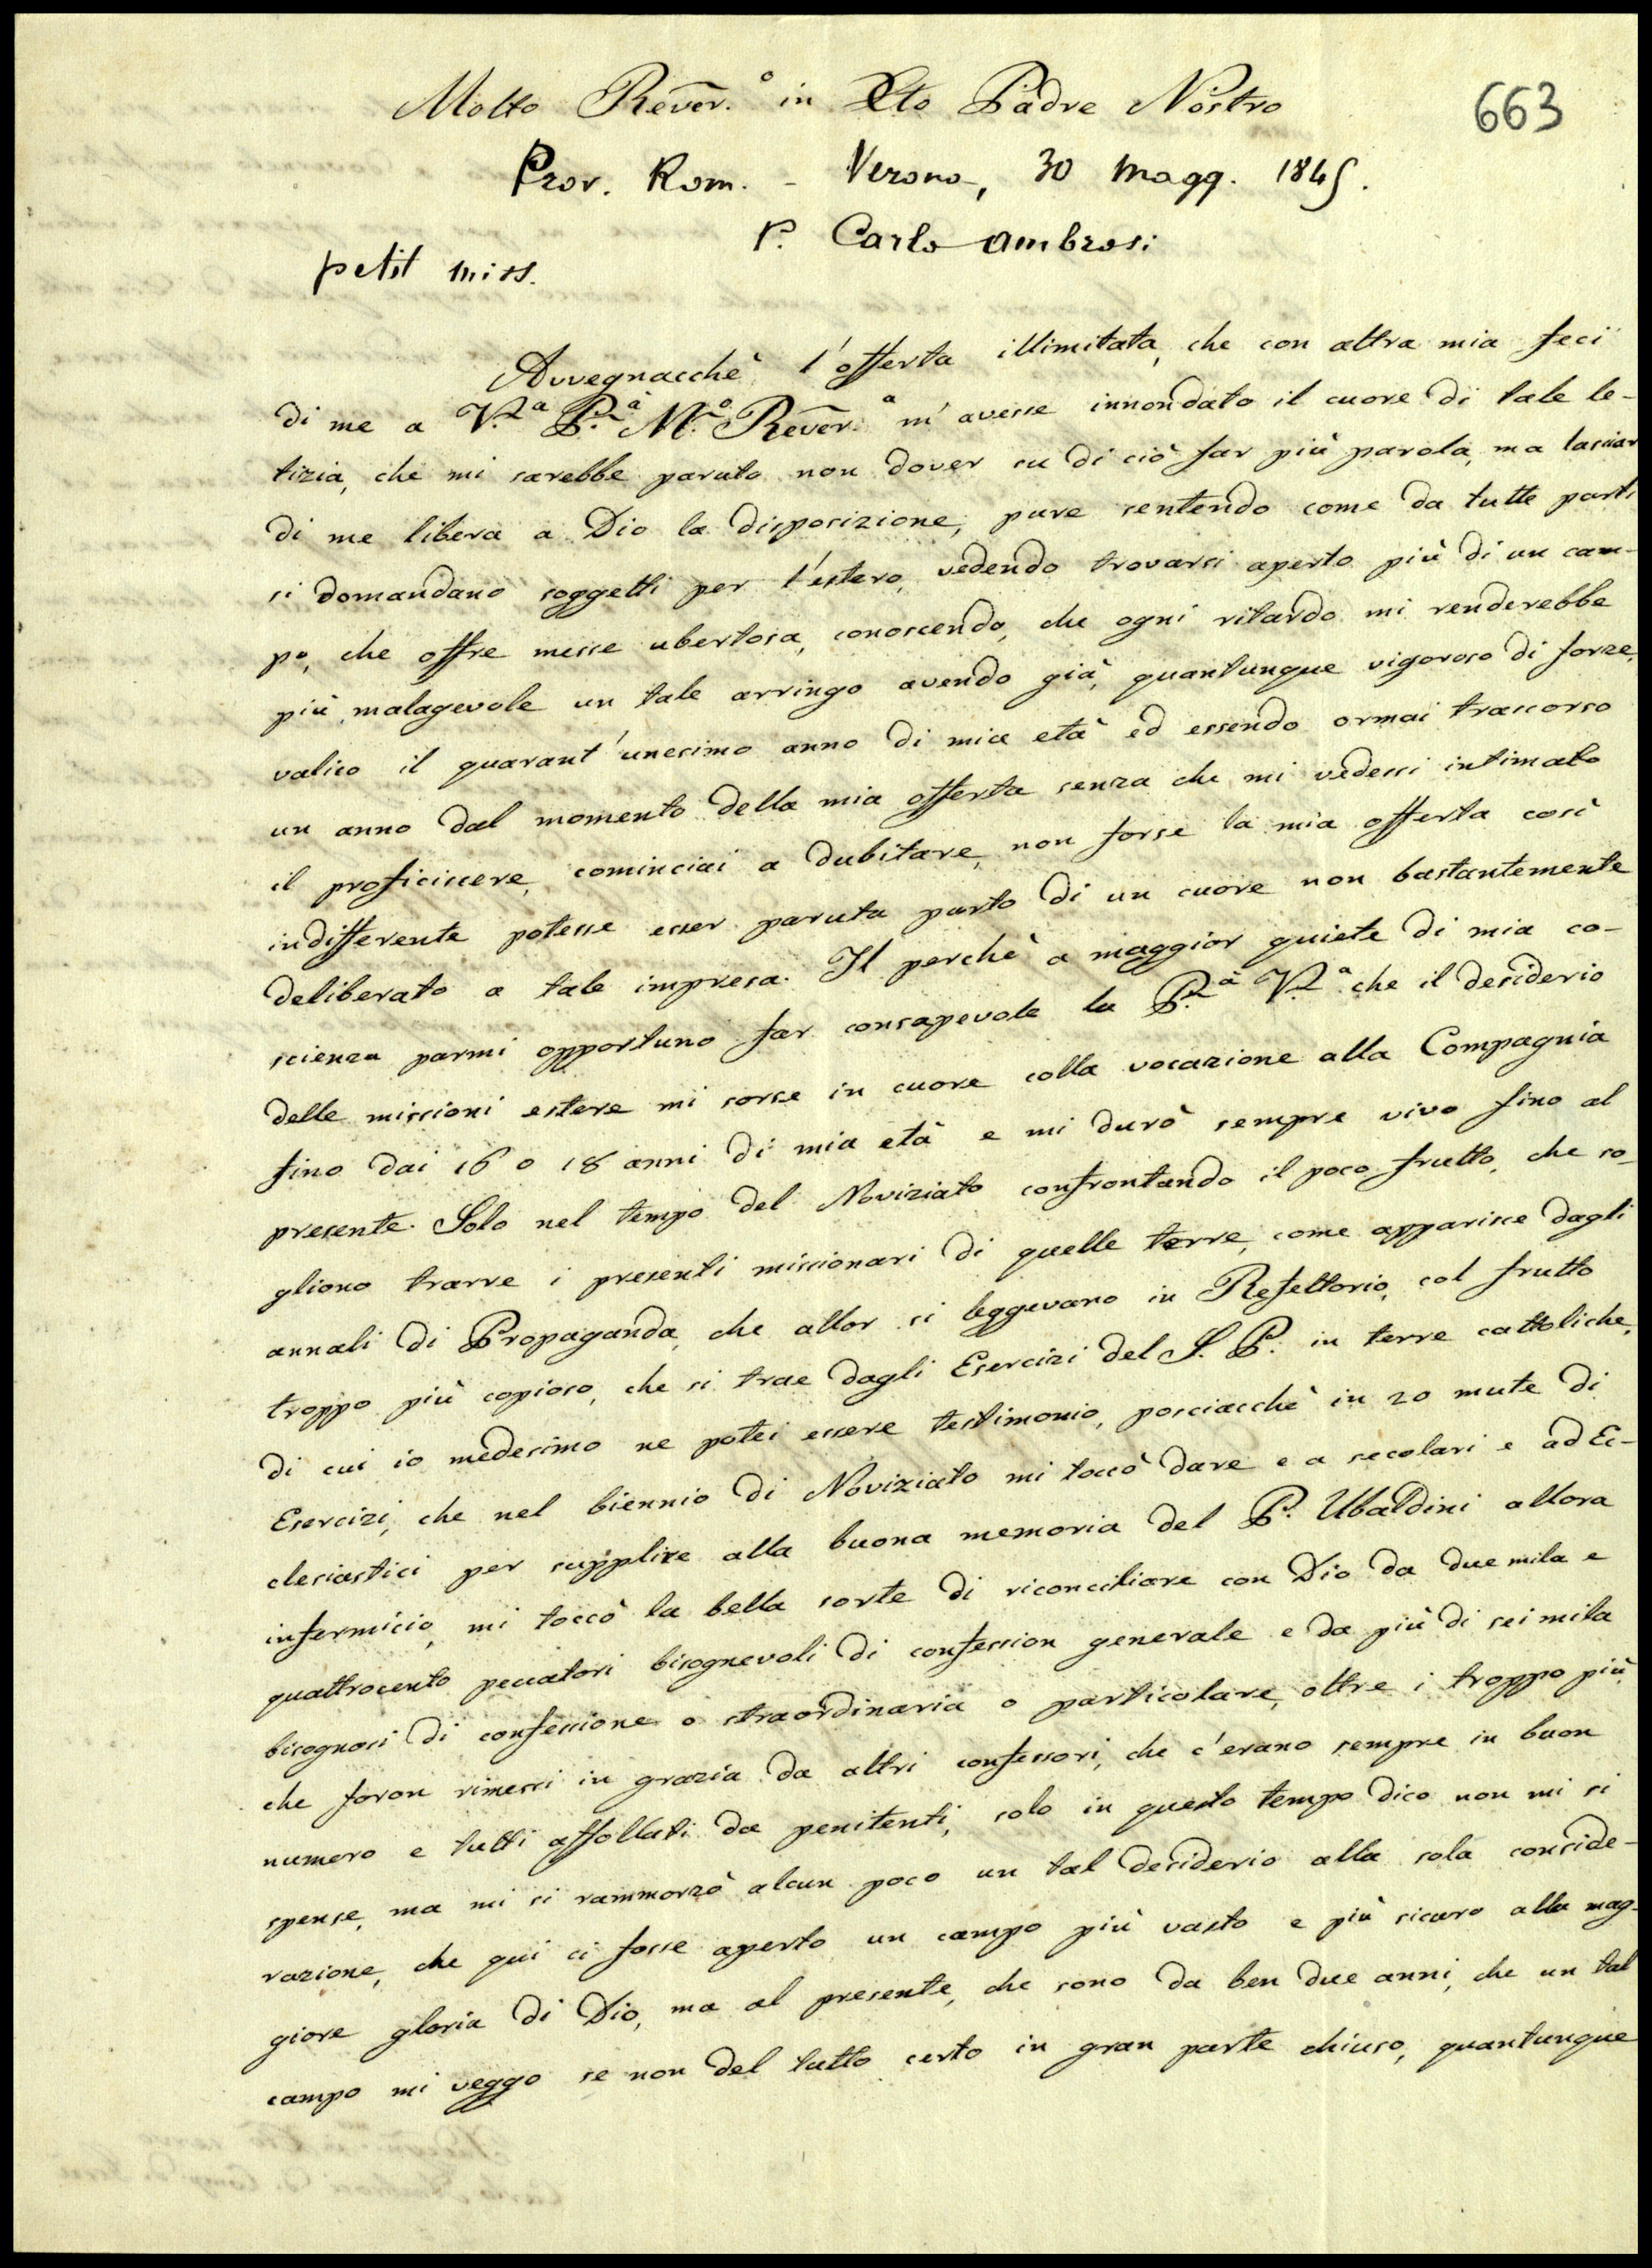 Molto Rever.º in Xto Padre Nostro
663
Prov. Rom. - Verona, 30 Magg. 1845.
P. Carlo Ambrosi
petit miss.
Avvegnacchè l'offerta illimitata, che con altra mia feci
di me a V.ª P.à M.º Rever.ª m'avesse innondato il cuore di tale le-
tizia, che mi sarebbe paruto non dover su di ciò far più parola, ma lasciar
di me libera a Dio la disposizione, pure sentendo come da tutte parti
si domandano soggetti per l'estero, vedendo trovarsi aperto più di un cam-
po, che offre messe ubertosa, conoscendo, che ogni ritardo mi renderebbe
più malagevole un tale arringo avendo già, quantunque vigoroso di forze,
valico il quarant'unesimo anno di mia età ed essendo ormai trascorso
un anno dal momento della mia offerta senza che mi vedessi intimato
il proficiscere, cominciai a dubitare, non forse la mia offerta così
indifferente potesse esser paruta parto di un cuore non bastantemente
deliberato a tale impresa. Il perchè a maggior quiete di mia co-
scienza parmi opportuno far consapevole la P.à V.ª che il desiderio
delle missioni estere mi sorse in cuore colla vocazione alla Compagnia
fino dai 16 o 18 anni di mia età e mi durò sempre vivo fino al
presente. Solo nel tempo del Noviziato confrontando il poco frutto, che so-
gliono trarre i presenti missionari di quelle terre, come apparisce dagli
annali di Propaganda, che allor si leggevano in Refettorio, col frutto
troppo più copioso, che si trae dagli Esercizi del S. P. in terre cattoliche,
di cui io medesimo ne potei essere testimonio, posciacchè in 20 mute di
Esercizi, che nel biennio di Noviziato mi toccò dare e a secolari e ad Ec-
clesiastici per supplire alla buona memoria del P. Ubaldini allora
infermicio, mi toccò la bella sorte di riconciliare con Dio da due mila e
quattrocento peccatori bisognevoli di confession generale e da più di sei mila
bisognosi di confessione o straordinaria o particolare, oltre i troppo più,
che foron rimessi in grazia da altri confessori, che c'erano sempre in buon
numero e tutti affollati da penitenti, solo in questo tempo dico non mi si
spense, ma mi si rammorzò alcun poco un tal desiderio alla sola conside-
razione, che qui ci fosse aperto un campo più vasto e più sicuro alla mag-
giore gloria di Dio, ma al presente, che sono da ben due anni, che un tal
campo mi veggo se non del tutto certo in gran parte chiuso, quantunque